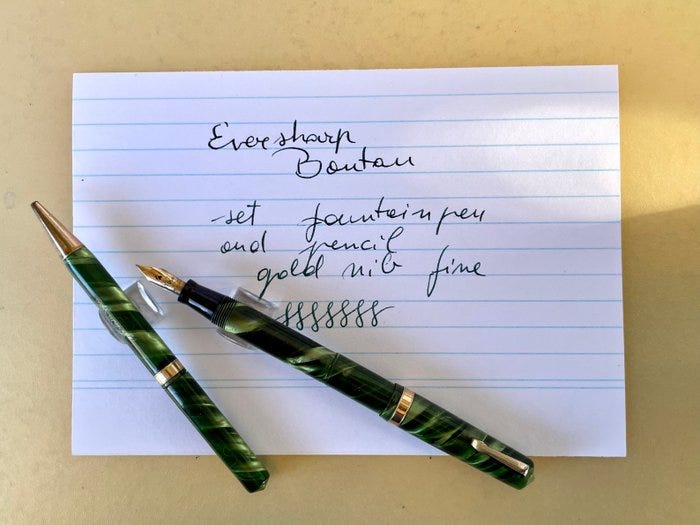 Eversharp
Bontan
set fountain pen
and pencil
gold nib fine